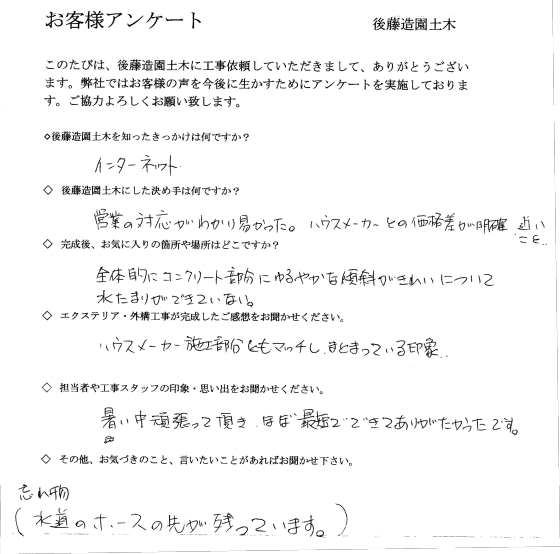 お客様アンケート
後藤造園土木
このたびは、後藤造園土木に工事依頼していただきまして、ありがとうござい
ます。弊社ではお客様の声を今後に生かすためにアンケートを実施しておりま
す。ご協力よろしくお願い致します。
◇後藤造園土木を知ったきっかけは何ですか？
インターネット
◇ 後藤造園土木にした決め手は何ですか？
営業の対応がわかり易かった。ハウスメーカーとの価格差が明確 近い
こと..
◇ 完成後、お気に入りの箇所や場所はどこですか？
全体的にコンクリート部分にゆるやかな傾斜がきれいについて
水たまりができていない。
◇ エクステリア・外構工事が完成したご感想をお聞かせください。
ハウスメーカー施工部分ともマッチし、まとまっている印象..
◇ 担当者や工事スタッフの印象・思い出をお聞かせください。
暑い中頑張って頂き、ほぼ最短でできてありがたかったです。
◇ その他、お気づきのこと、言いたいことがあればお聞かせ下さい。
忘れ物
(水道のホースの先が残っています。)